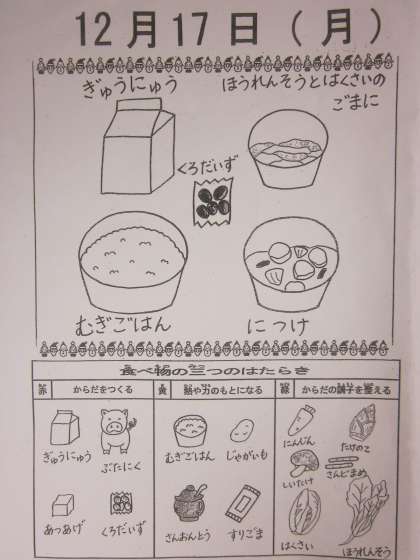 12月17日(月)
ぎゅうにゅう
ほうれんそうとはくさいの
ごまに
くろだいず
むぎごはん
につけ
食べ物の三つのはたらき
赤 からだをつくる
黄 熱や力のもとになる
緑 からだの調子を整える
ぎゅうにゅう
ぶたにく
むぎごはん
じゃがいも
にんじん
たけのこ
しいたけ
さんどまめ
あつあげ
くろだいず
さんおんとう
すりごま
はくさい
ほうれんそう